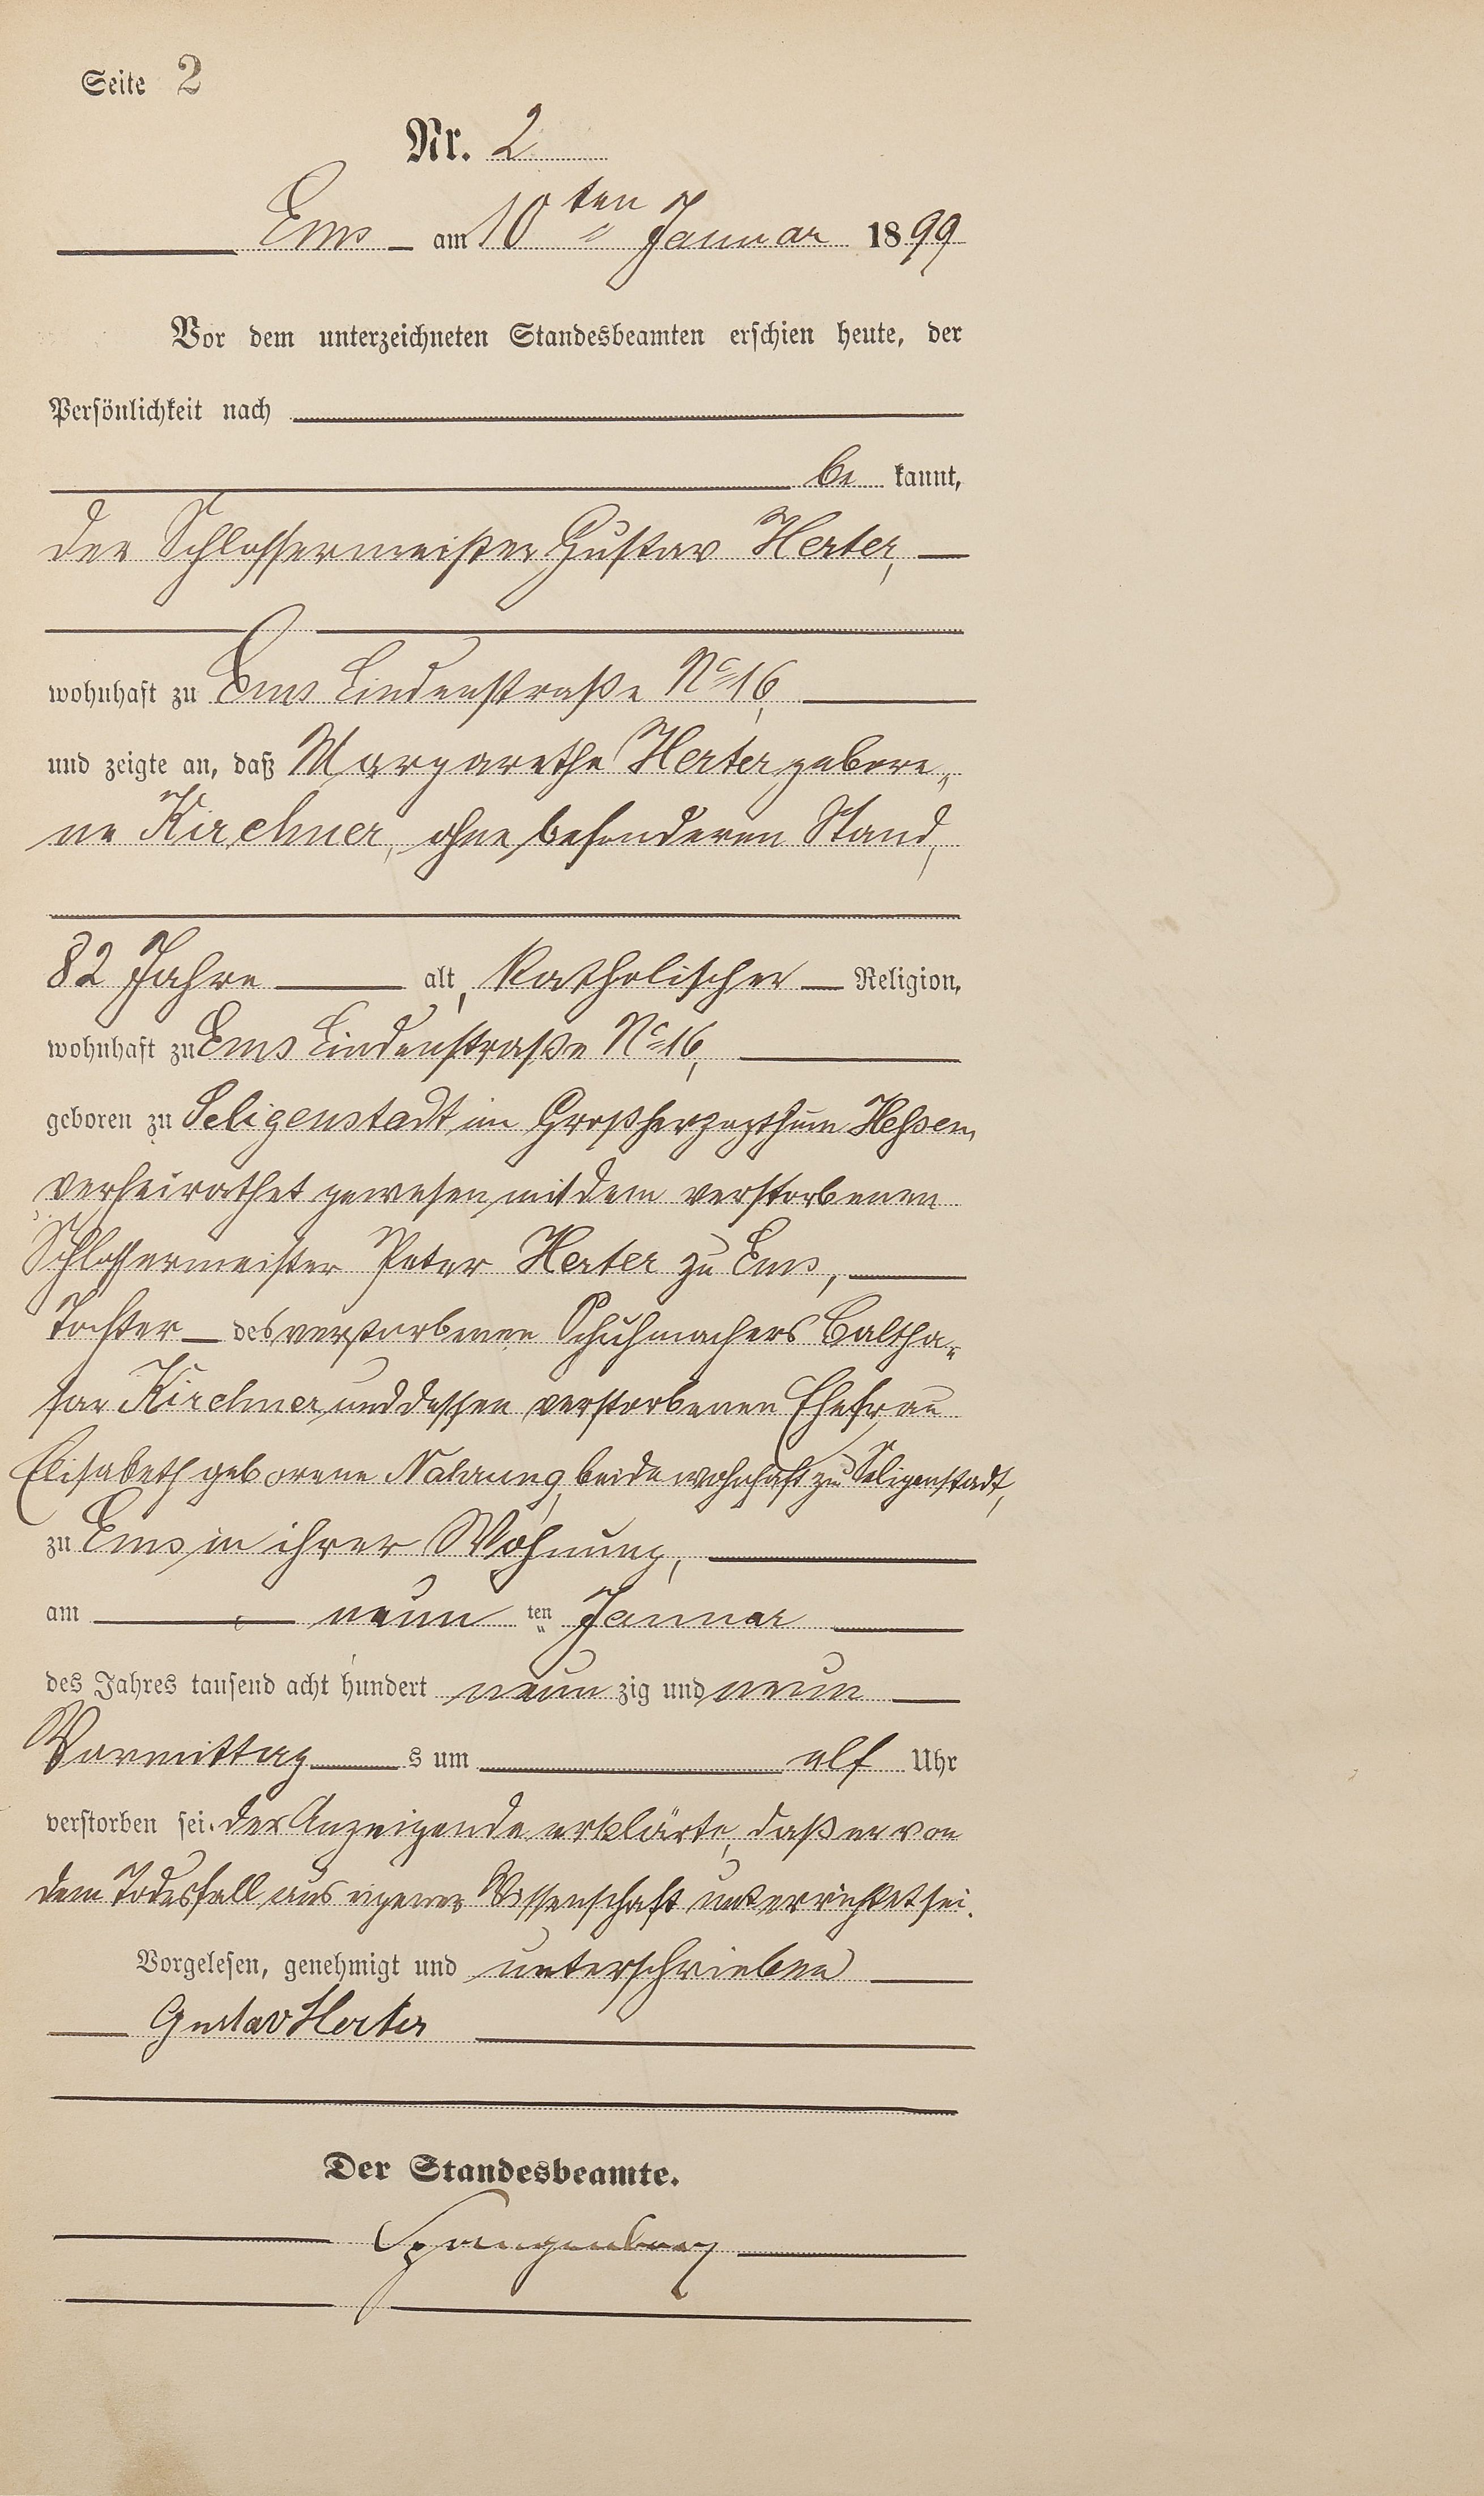 Seite 2
Nr. 2
Ems am 10ten Januar 1899
Vor dem unterzeichneten Standesbeamten erschien heute, der
Persönlichkeit nach
be kannt,
der Schlossermeister Gustav Herter,
wohnhaft zu Ems Lindenstraße No 16,
und zeigte an, daß Margarethe Herter gebore„
ne Kirchner, ohne besonderen Stand,
82 Jahre alt, katholischer Religion,
wohnhaft zu Ems Lindenstraße No 16,
geboren zu Seligenstadt im Großherzogthum Hessen,
verheirathet gewesen mit dem verstorbenen
Schlossermeister Peter Herter zu Ems,
Tochter des verstorbenen Schuhmachers Baltha„
sar Kirchner und dessen verstorbenen Ehefrau
Elisabeth geborene Nahrung, beide wohnhaft zu Seligenstadt,
zu Ems in ihrer Wohnung,
am neun ten Januar
des Jahres tausend acht hundert neun zig und neun
Vormittag s um elf Uhr
verstorben sei. Der Anzeigende erklärte, daß er von
dem Todesfall aus eigener Wissenschaft unterrichtet sei.
Vorgelesen, genehmigt und unterschrieben
Gustav Herter
Der Standesbeamte.
Spangenberg